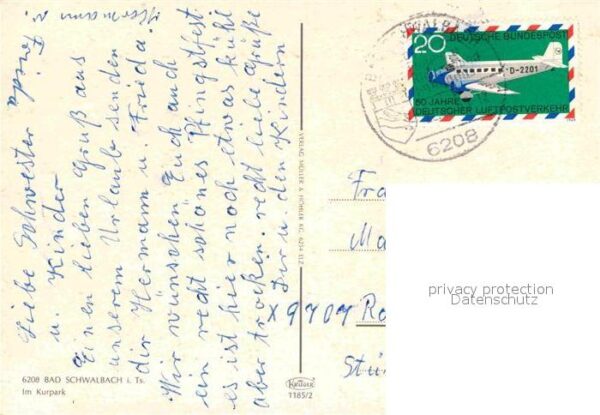 Liebe Schwester
u. Kinder
Einen lieben Gruß aus
unserem Urlaub senden
dir Hermann u. Frieda.
Wir wünschen Euch auch
ein recht schönes Pfingstfest
es ist hier noch etwas kühl
aber trocken. recht viele Grüße
Dir u. den Kindern
Hermann u.
Frieda
6208 BAD SCHWALBACH i. Ts.
Im Kurpark
VERLAG MÖLLER & HÖHLER KG, 6234
Krüger
1185/2
20 DEUTSCHE BUNDESPOST
D-2201
50 JAHRE
DEUTSCHER LUFTPOSTVERKEHR
6208
Fra
Ma
x 9707 Re
privacy protection
Datenschutz